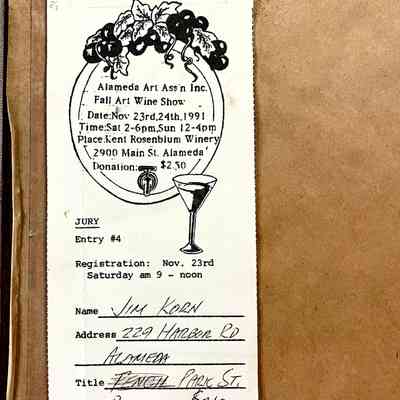 Alameda Art Ass'n Inc.
Fall Art Wine Show
Date:Nov 23rd,24th,1991
Time:Sat 2-6pm,Sun 12-4pm
Place:Kent Rosenblum Winery
2900 Main St. Alameda
Donation: $2.50
JURY
Entry #4
Registration: Nov. 23rd
Saturday am 9 - noon
Name JIM KORN
Address 229 HARBOR RD
ALAMEDA
Title PARK ST.